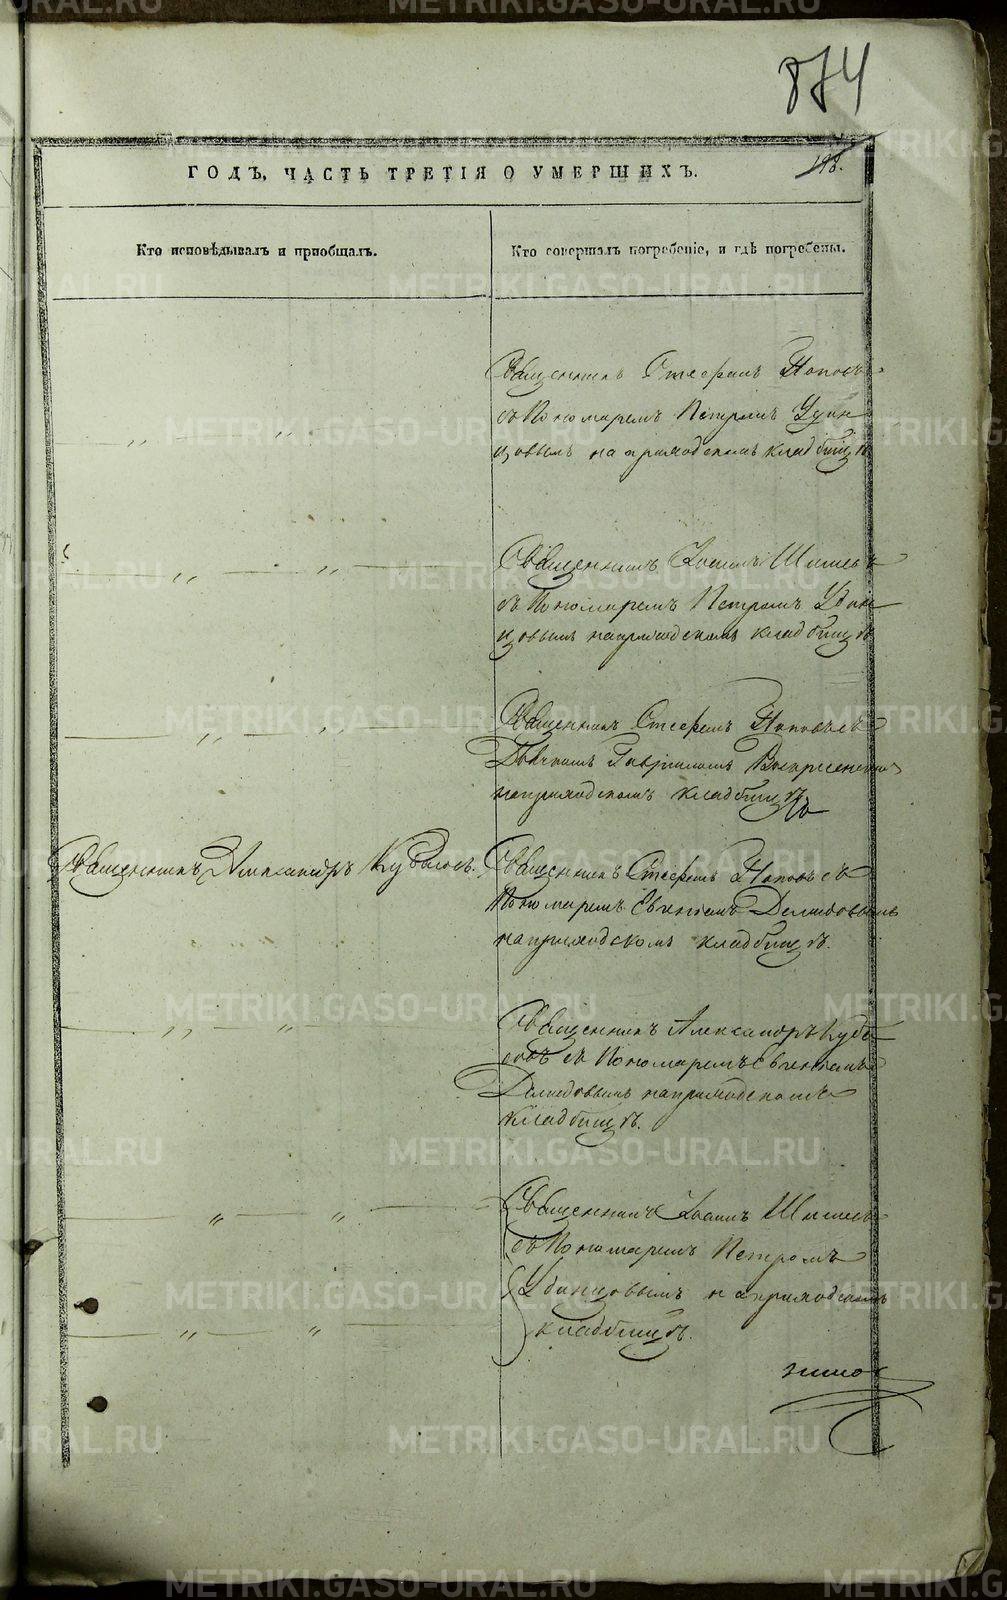 874
198.
ГОДЪ, ЧАСТЬ ТРЕТІЯ О УМЕРШИХЪ.
Кто исповѣдывалъ и пріобщалъ.
Кто совершалъ погребеніе, и гдѣ погребены.
Священникъ Стефанъ Поповъ
съ Пономаремъ Петромъ Удин
цовымъ на приходскомъ кладбищѣ
Священникъ Іоаннъ Шишевъ
съ Пономаремъ Петромъ Удин
цовымъ на приходскомъ кладбищѣ
Священникъ Стефанъ Поповъ съ
Дьячкомъ Гавріиломъ
на приходскомъ кладбищѣ
Священникъ Александръ Кубасовъ.
Священникъ Стефанъ Поповъ съ
Пономаремъ Евгеніемъ Демидовымъ
на приходскомъ кладбищѣ.
Священникъ Александръ Куба
совъ съ Пономаремъ Евгеніемъ
Демидовымъ на приходскомъ
кладбищѣ.
Священникъ Іоаннъ Шишевъ
съ Пономаремъ Петромъ
Удинцовымъ на приходскомъ
кладбищѣ.
METRIKI.GASO-URAL.RU